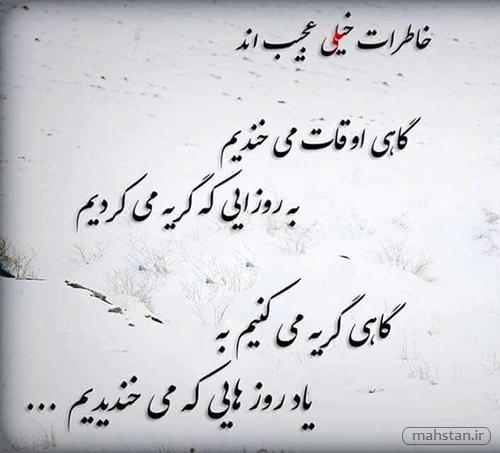 خاطرات خیلی عجیب اند
گاهی اوقات می خندیم
به روزایی که گریه می کردیم
گاهی گریه می کنیم به
یاد روز هایی که می خندیدیم ...
mahstan.ir